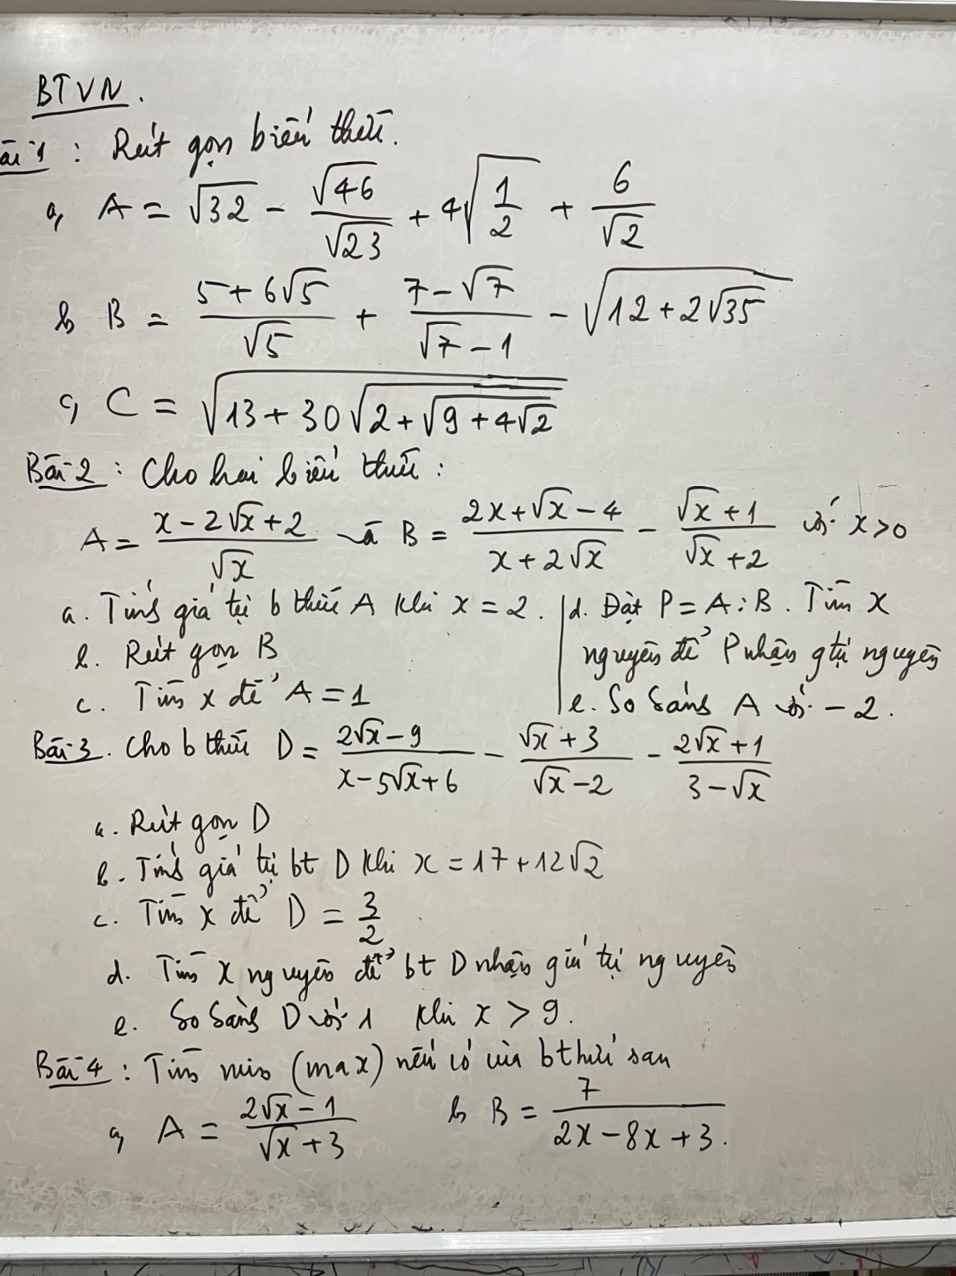 BTVN.
Bài 1 : Rút gọn biểu thức.
a, A = √32 - √46/√23 + 4√(1/2) + 6/√2
b, B = (5+6√5)/√5 + (7-√7)/(√7-1) - √(12+2√35)
c, C = √(13+30√(2+√(9+4√2)))
Bài 2 : Cho hai biểu thức :
A = (x-2√x+2)/√x và B = (2x+√x-4)/(x+2√x) - (√x+1)/(√x+2) với x>0
a. Tính giá trị b thức A khi x = 2.
b. Rút gọn B
c. Tìm x để A = 1
d. Đặt P = A : B. Tìm x
nguyên để P nhận gtrị nguyên
e. So sánh A với -2.
Bài 3. Cho b thức D = (2√x-9)/(x-5√x+6) - (√x+3)/(√x-2) - (2√x+1)/(3-√x)
a. Rút gọn D
b. Tính giá trị bt D khi x = 17+12√2
c. Tìm x để D = 3/2
d. Tìm x nguyên để bt D nhận giá trị nguyên
e. So sánh D với 1 khi x > 9.
Bài 4 : Tìm min (max) nếu có của bthức sau
a, A = (2√x-1)/(√x+3) b, B = 7/(2x-8x+3).